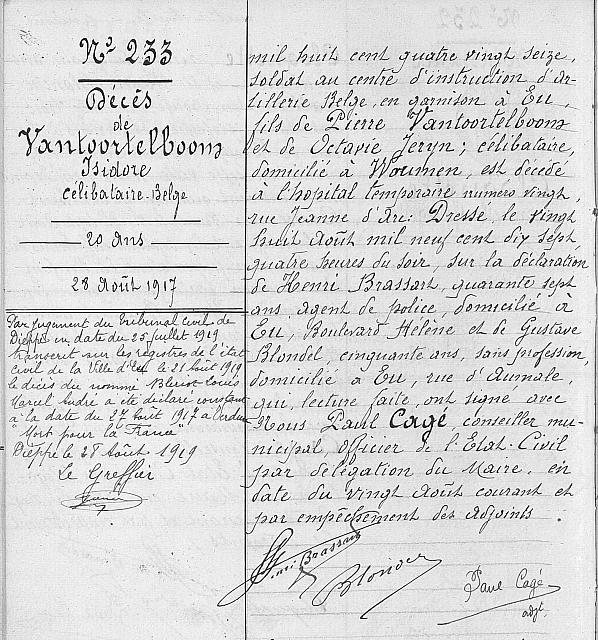 N° 233
Décès
de
Vantoortelboom
Isidore
célibataire-Belge
20 ans
28 Août 1917
Par jugement du Tribunal civil de
Dieppe en date du 25 juillet 1919
transcrit sur les registres de l'état
civil de la Ville d'Eu le 21 août 1919
le décès du nommé Louis
Marcel André a été déclaré constant
à la date du 27 août 1917 à Verdun
"Mort pour la France"
Dieppe le 28 Août 1919
Le Greffier
mil huit cent quatre vingt seize,
soldat au centre d'instruction d'Ar-
tillerie Belge, en garnison à Eu,
fils de Pierre Vantoortelboom
et de Octavie Jeryn; célibataire,
domicilié à Woumen, est décédé
à l'hopital temporaire numero vingt,
rue Jeanne d'Arc: Dressé, le vingt
huit Août mil neuf cent dix sept,
quatre heures du soir, sur la déclaration
de Henri Brassart, quarante sept
ans, agent de police, domicilié à
Eu, Boulevard Hélène et de Gustave
Blondel, cinquante ans, sans profession,
domicilié à Eu, rue d'Aumale,
qui, lecture faite, ont signé avec
Nous Paul Cagé, conseiller mu-
nicipal, Officier de l'Etat-Civil
par délégation du Maire, en
date du vingt Août courant et
par empêchement des Adjoints.
Henri Brassart
Blondel
Paul Cagé
adjt